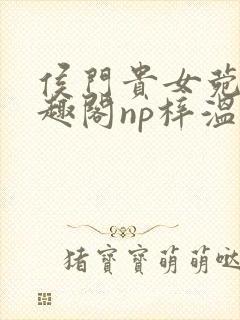 侯門貴女菀
趣閣np梓溫
猪寶寶萌萌噠